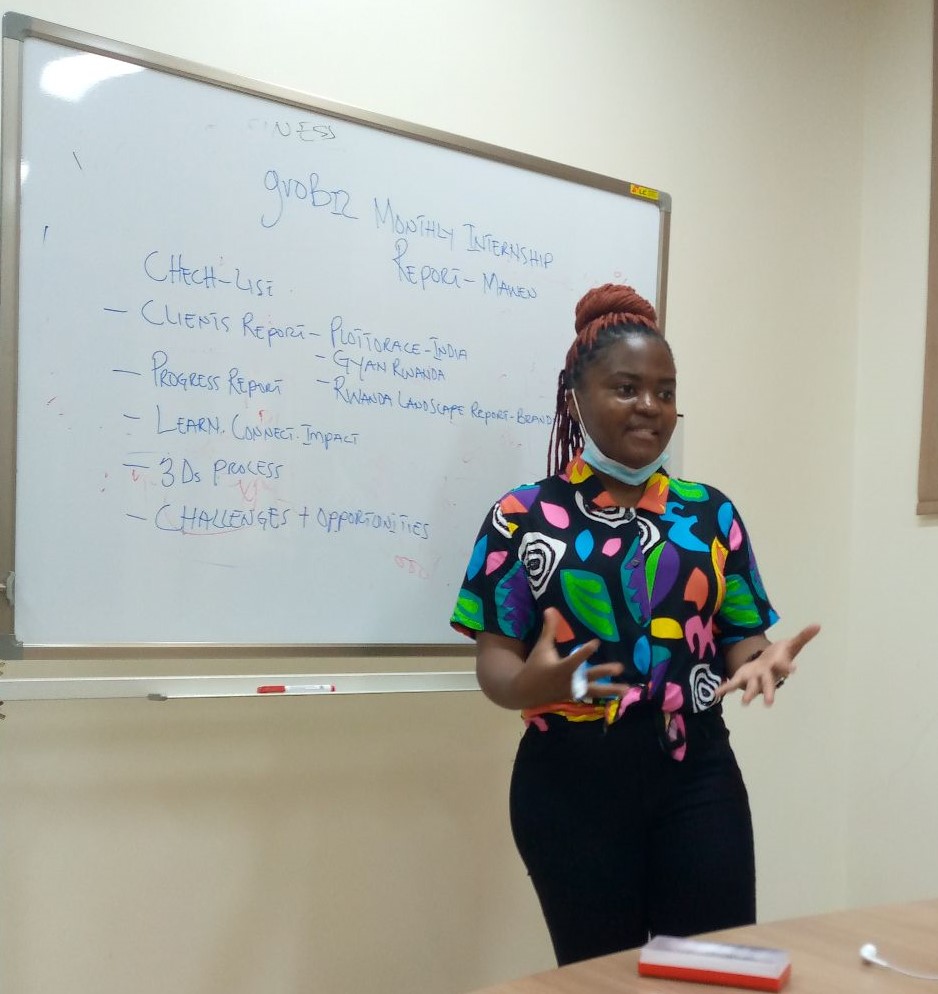 NESS
groBiz Monthly Internship
Report - Mawen
Chech-List
- Clients Report - Plottorace - India
- Gyan Rwanda
- Progress Report
- Rwanda Landscape Report - Brand
- Learn. Connect. Impact
- 3Ds Process
- Challenges + Opportunities